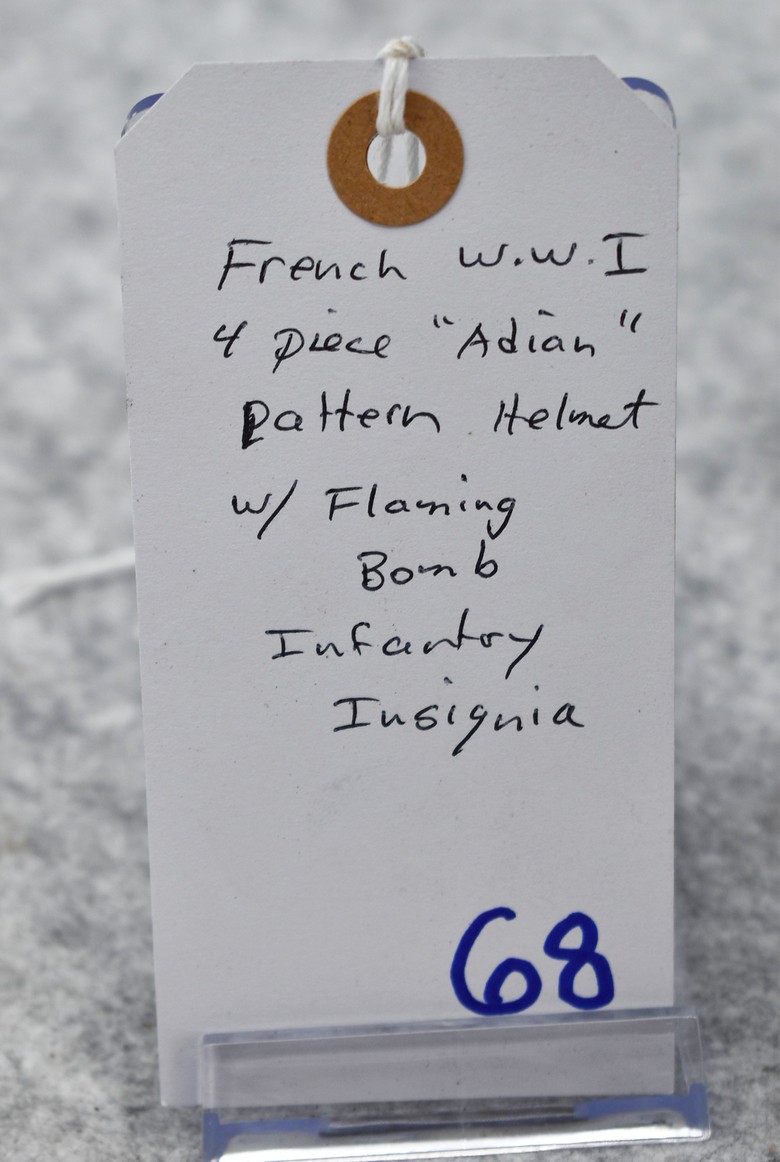 French W.W.I
4 piece "Adian"
pattern Helmet
w/ Flaming
Bomb
Infantry
Insignia
68